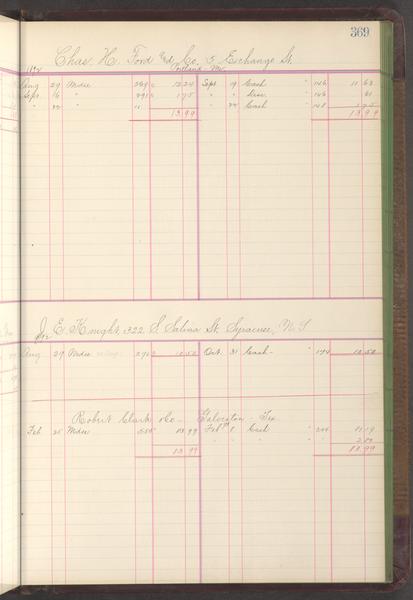 369
Chas. H. Ford and Co. 5 Exchange St.
Portland Me.
Aug 29 Mdse 269 12 24 Sept 19 Cash " 146 11 63
Sept 16 " 291 1 75 " " Disc " 146 61
" 22 " " 22 Cash " 148 1 75
13 99 13 99
J. E. Knight, 322 S. Salina St. Syracuse, N. Y.
Aug 29 Mdse 272 10 50 Oct. 31 Cash " 194 10 50
Robert Clark & Co — Galveston — Tex
Feb 25 Mdse 555 13 99 Feb 1 Cash " 11 19
" " " 2 80
13 99 13 99